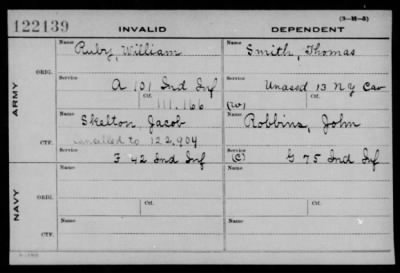 (3-M-5)
122139 INVALID DEPENDENT
Name Ruby, William Name Smith, Thomas
ARMY
ORIG.
Service A 101 Ind Inf Service Unassd 13 N Y Cav
Ctf. 111.166 Ctf.
Name Skelton, Jacob (W) Name Robbins, John
cancelled to 122,904
CTF.
Service F 42 Ind Inf Service (C) G 75 Ind Inf
NAVY
Name Name
ORIG.
Service Ctf. Service Ctf.
Name Name
CTF.
Service Service